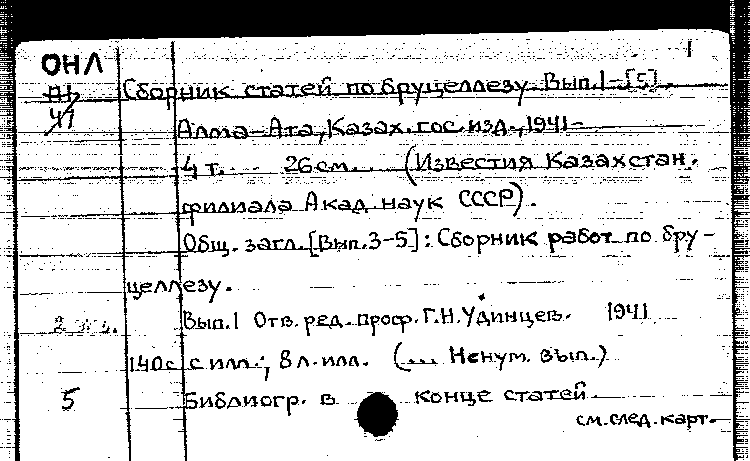 1
ОНЛ
Сборник статей по бруцеллезу. Вып.1-[5].
41
Алма-Ата, Казах.гос.изд., 1941-
4 т. 26 см. (Известия Казахстан.
филиала Акад. наук СССР).
Общ. загл. [Вып.3-5]: Сборник работ по бру-
целлезу.
Вып.1 Отв. ред. проф. Г.Н. Удинцев. 1941
140 с с илл.; 8 л. илл. (... Ненум. вып.)
5 Библиогр. в конце статей.
см. след. карт.